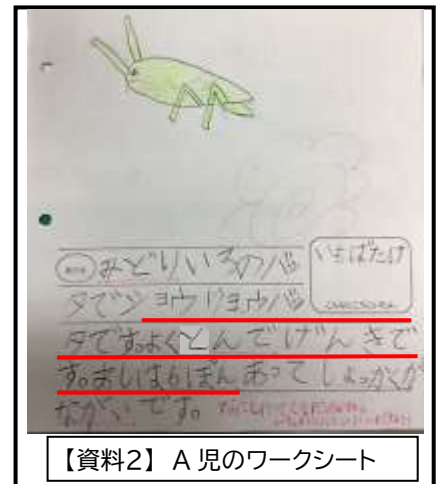 いちばたけ
みどりいろのバ
タでショウリョウバ
タです。よくとんでげんきで
す。あしは6ぽんあってしょっかくが
ながいです。
【資料2】 A児のワークシート